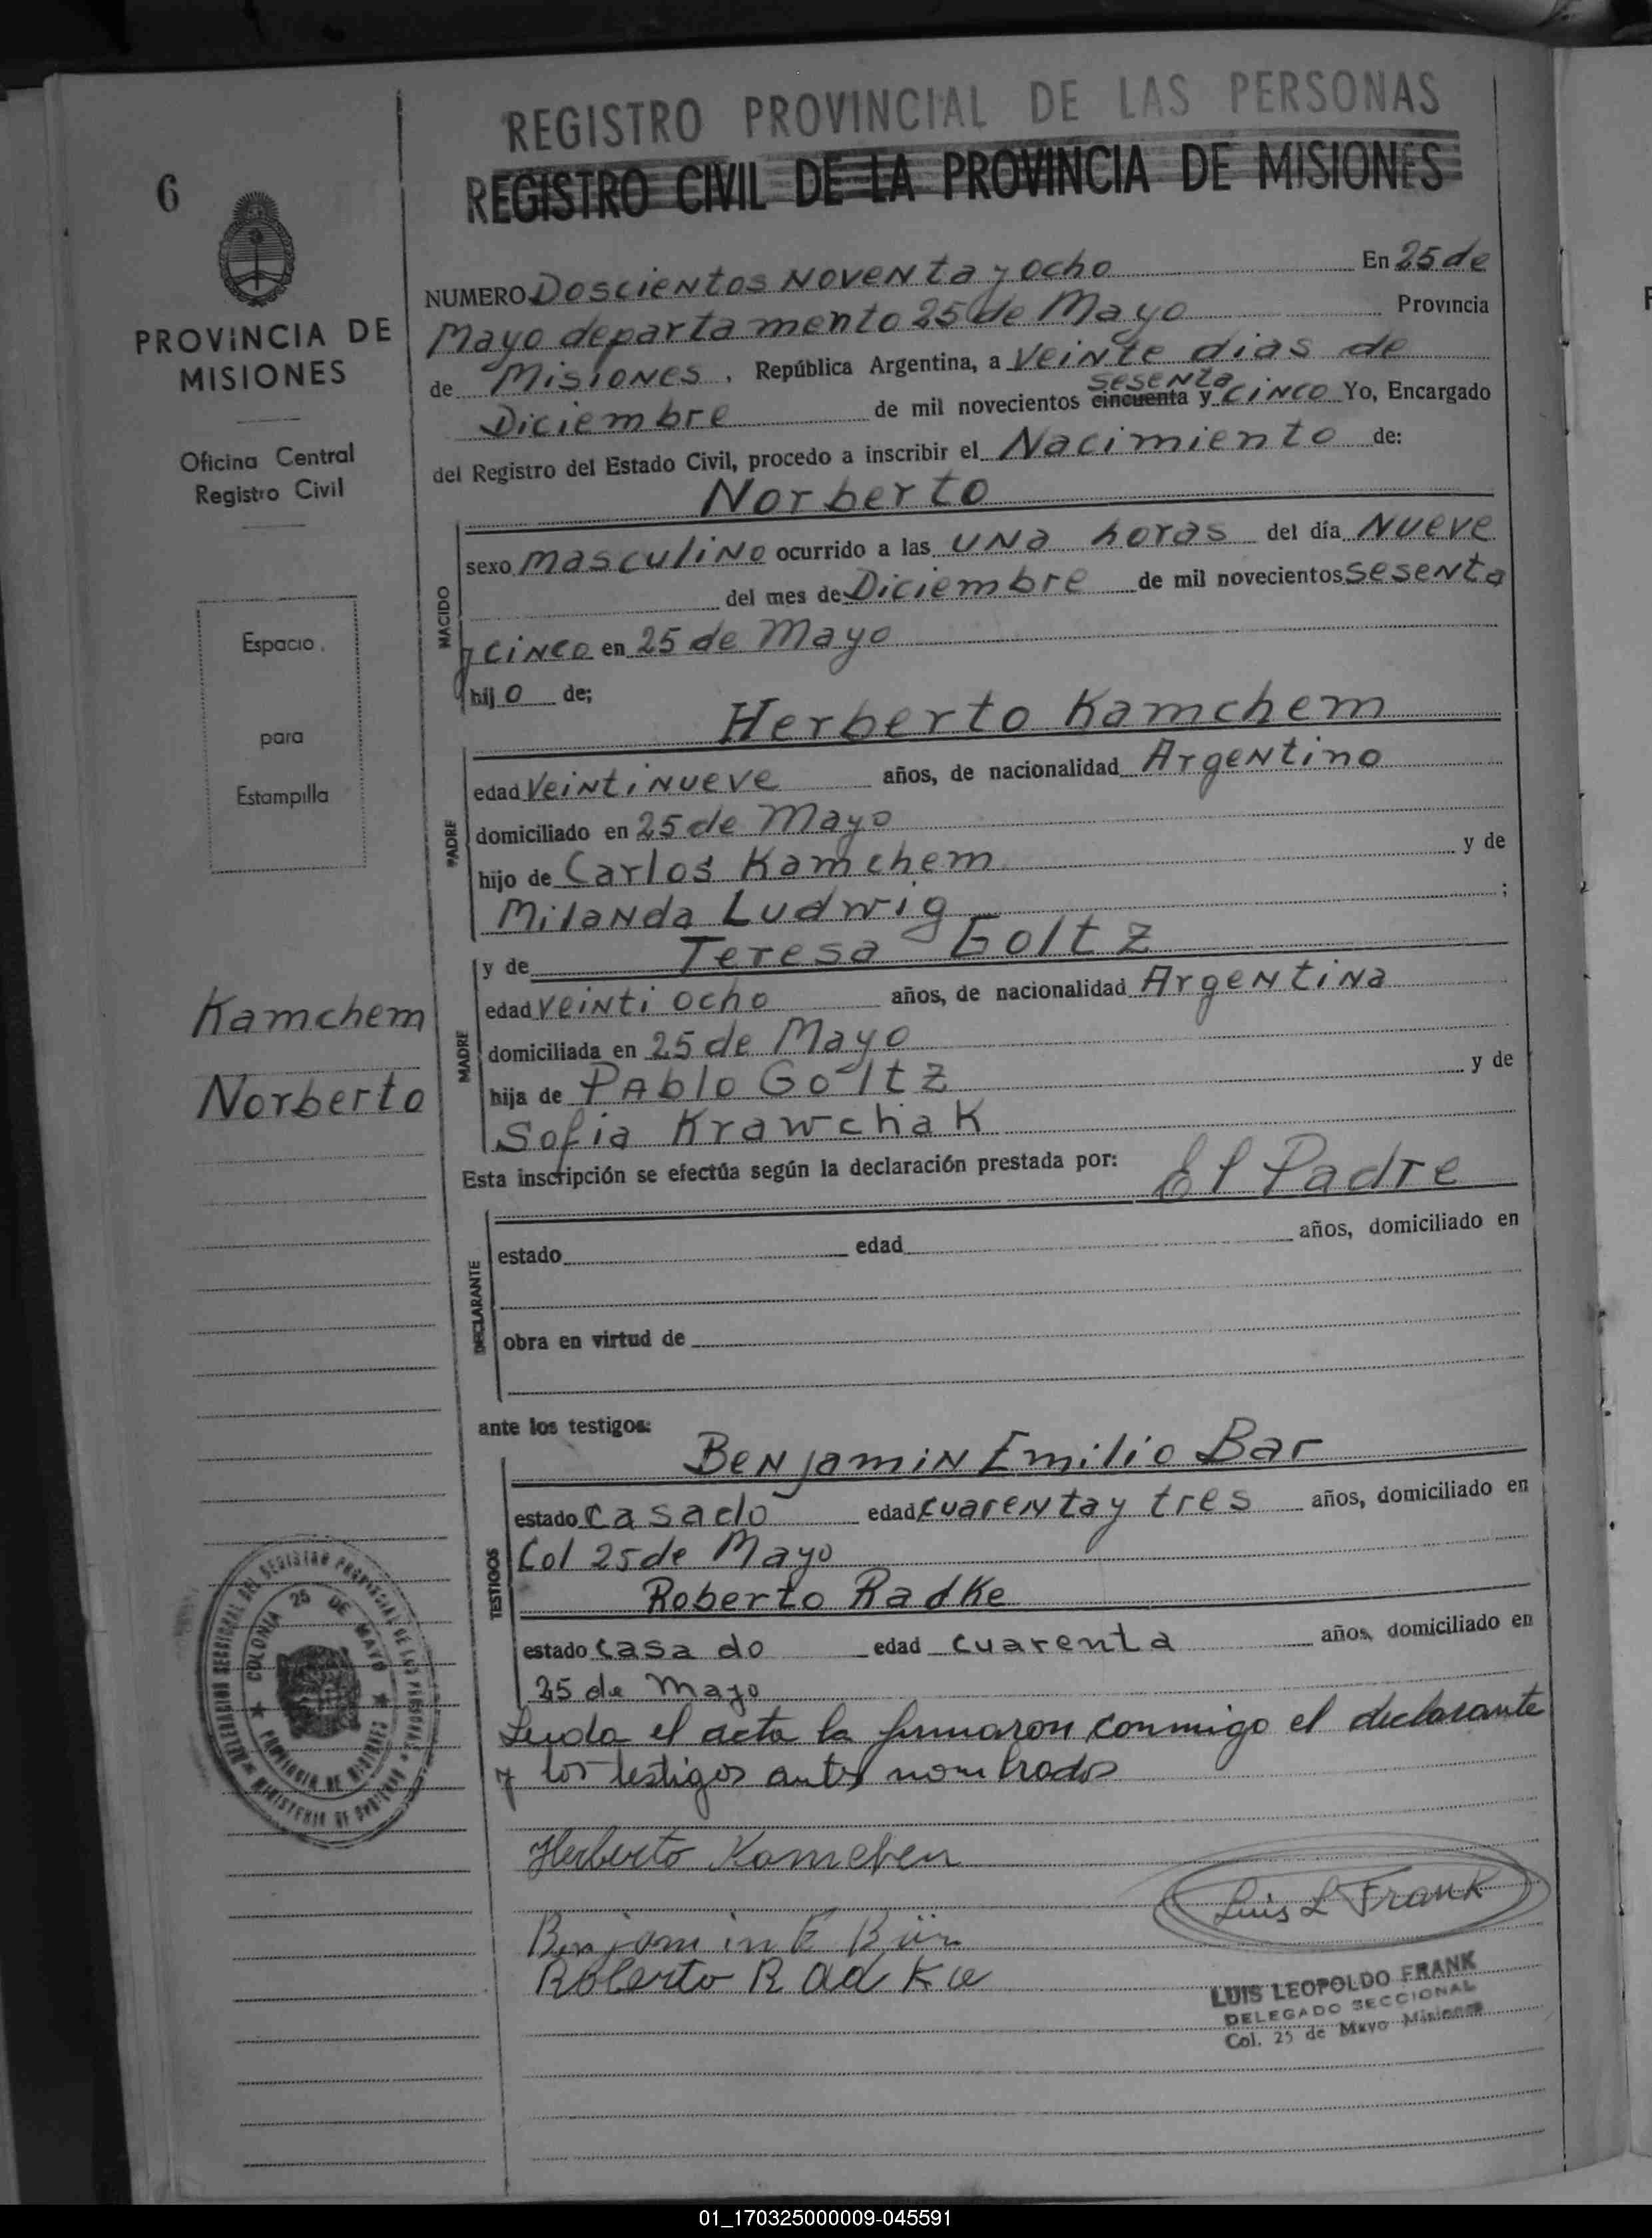 REGISTRO PROVINCIAL DE LAS PERSONAS
REGISTRO CIVIL DE LA PROVINCIA DE MISIONES
6
PROVINCIA DE
MISIONES
Oficina Central
Registro Civil
Espacio
para
Estampilla
Kamchem
Norberto
NUMERO Doscientos Noventa y ocho En 25 de
Mayo departamento 25 de Mayo Provincia
de Misiones, República Argentina, a Veinte dias de
sesenta
Diciembre de mil novecientos cincuenta y cinco Yo, Encargado
del Registro del Estado Civil, procedo a inscribir el Nacimiento de:
Norberto
NACIDO
sexo masculino ocurrido a las una horas del día Nueve
del mes de Diciembre de mil novecientos sesenta
y cinco en 25 de Mayo
hijo de;
Herberto Kamchem
PADRE
edad Veintinueve años, de nacionalidad Argentino
domiciliado en 25 de Mayo
hijo de Carlos Kamchem y de
Milanda Ludwig ;
y de Teresa Goltz
MADRE
edad veinti ocho años, de nacionalidad Argentina
domiciliada en 25 de Mayo
hija de Pablo Goltz y de
Sofia Krawchak
Esta inscripción se efectúa según la declaración prestada por: El Padre
DECLARANTE
estado edad años, domiciliado en
obra en virtud de
ante los testigos:
Benjamin Emilio Bar
TESTIGOS
estado casado edad cuarenta y tres años, domiciliado en
Col 25 de Mayo
Roberto Radke
estado casado edad cuarenta años, domiciliado en
25 de Mayo
Leida el acta la firmaron conmigo el declarante
y los testigos antes nombrados
Herberto Kamchen
Luis L Frank
Benjamin E Bär
Roberto Radke
LUIS LEOPOLDO FRANK
DELEGADO SECCIONAL
Col. 25 de Mayo Misiones
COLONIA 25 DE MAYO
PROVINCIA DE MISIONES
01_170325000009-045591